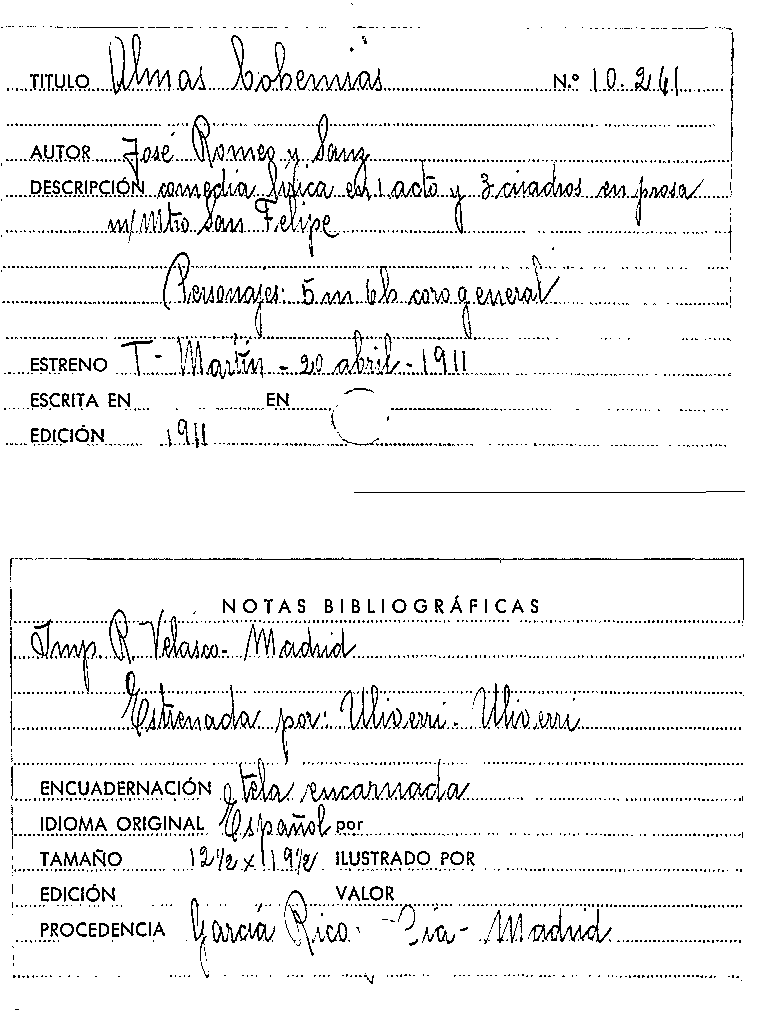 TITULO Almas bohemias N.º 10.261
AUTOR José Romeo y Sanz
DESCRIPCIÓN comedia lírica en 1 acto y 3 cuadros en prosa
m/Mtro San Felipe
Personajes: 5 m 6 h coro general
ESTRENO T - Martín - 20 abril - 1911
ESCRITA EN EN
EDICIÓN 1911
NOTAS BIBLIOGRÁFICAS
Imp. R. Velasco - Madrid
Estrenada por: Uliverri - Uliverri
ENCUADERNACIÓN tela encarnada
IDIOMA ORIGINAL Español por
TAMAÑO 12 1/2 x 19 1/2 ILUSTRADO POR
EDICIÓN VALOR
PROCEDENCIA García Rico - Cía - Madrid